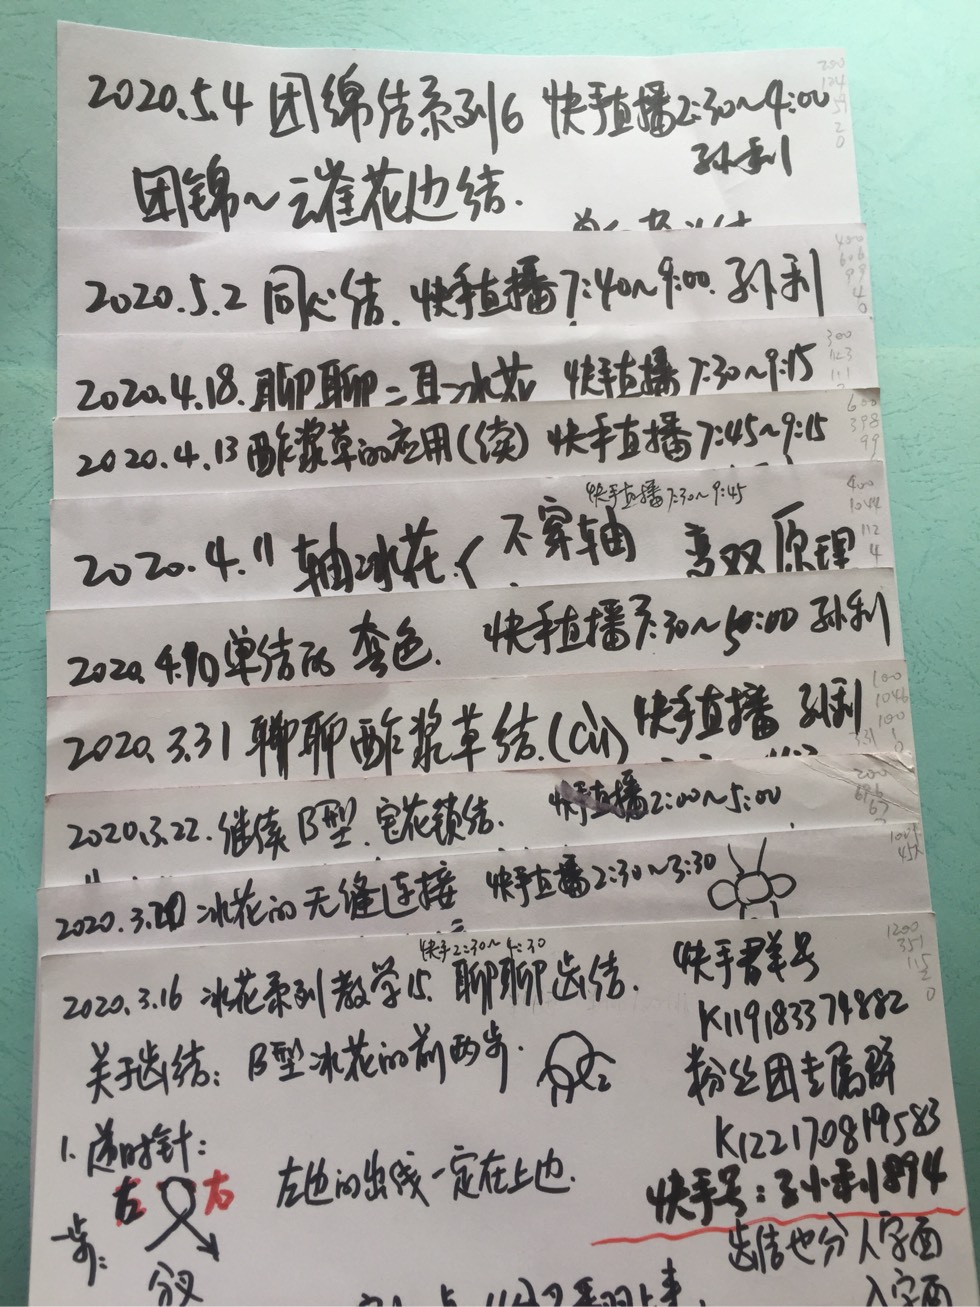 2020.5.4 团绵结系列6 快手直播2:30~4:00
孙利
团锦~云雀花边结.
2020.5.2 同心结. 快手直播7:40~9:00. 孙利
2020.4.18. 聊聊二耳冰花 快手直播7:30~9:15
2020.4.13 酢浆草的应用(续) 快手直播7:45~9:15
快手直播7:30~9:45
2020.4.11 轴冰花. 不穿轴 变双原理
单结的 套色. 快手直播 孙利
2020.3.31 聊聊酢浆草结. 快手直播 孙利
2020.3.22. 继续B型. 宝花锁结. 快手直播2:00~5:00
冰花的无缝连接 快手直播2:30~3:30
快手2:30~4:30
2020.3.16 冰花系列教学15. 聊聊齿结.
快手群号
K119183374882
关于齿结: B型冰花的前两步.
粉丝团专属群
K122170819583
1. 逆时针:
左 右
左边的出线一定在上边.
快手号:孙小利1894
一步:
分叉
齿结也分人字面
入字面